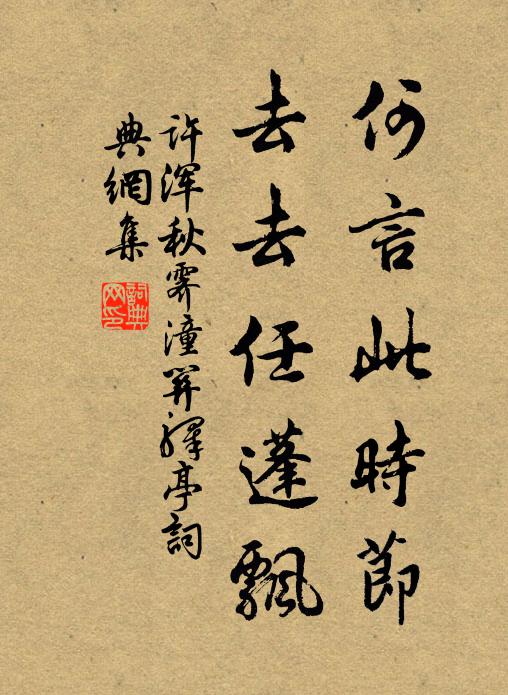 何言此時節
去去任蓬飄
許渾秋霽潼關驛亭詞
典網集
詞典網印